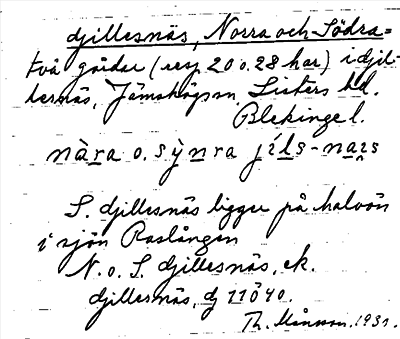 djillesnäs, Norra och Södra=
två gårdar (resp 20 o. 28 har) i djil-
lesnäs, Jämshögs sn, Listers hd.
Blekinge l.
nàra o. sỳnra jíls-nais
S. djillesnäs ligger på halvön
i sjön Raslången
N. o. S. djillesnäs, ek.
djillesnäs, dj 11040.
Th. Månsson. 1931.